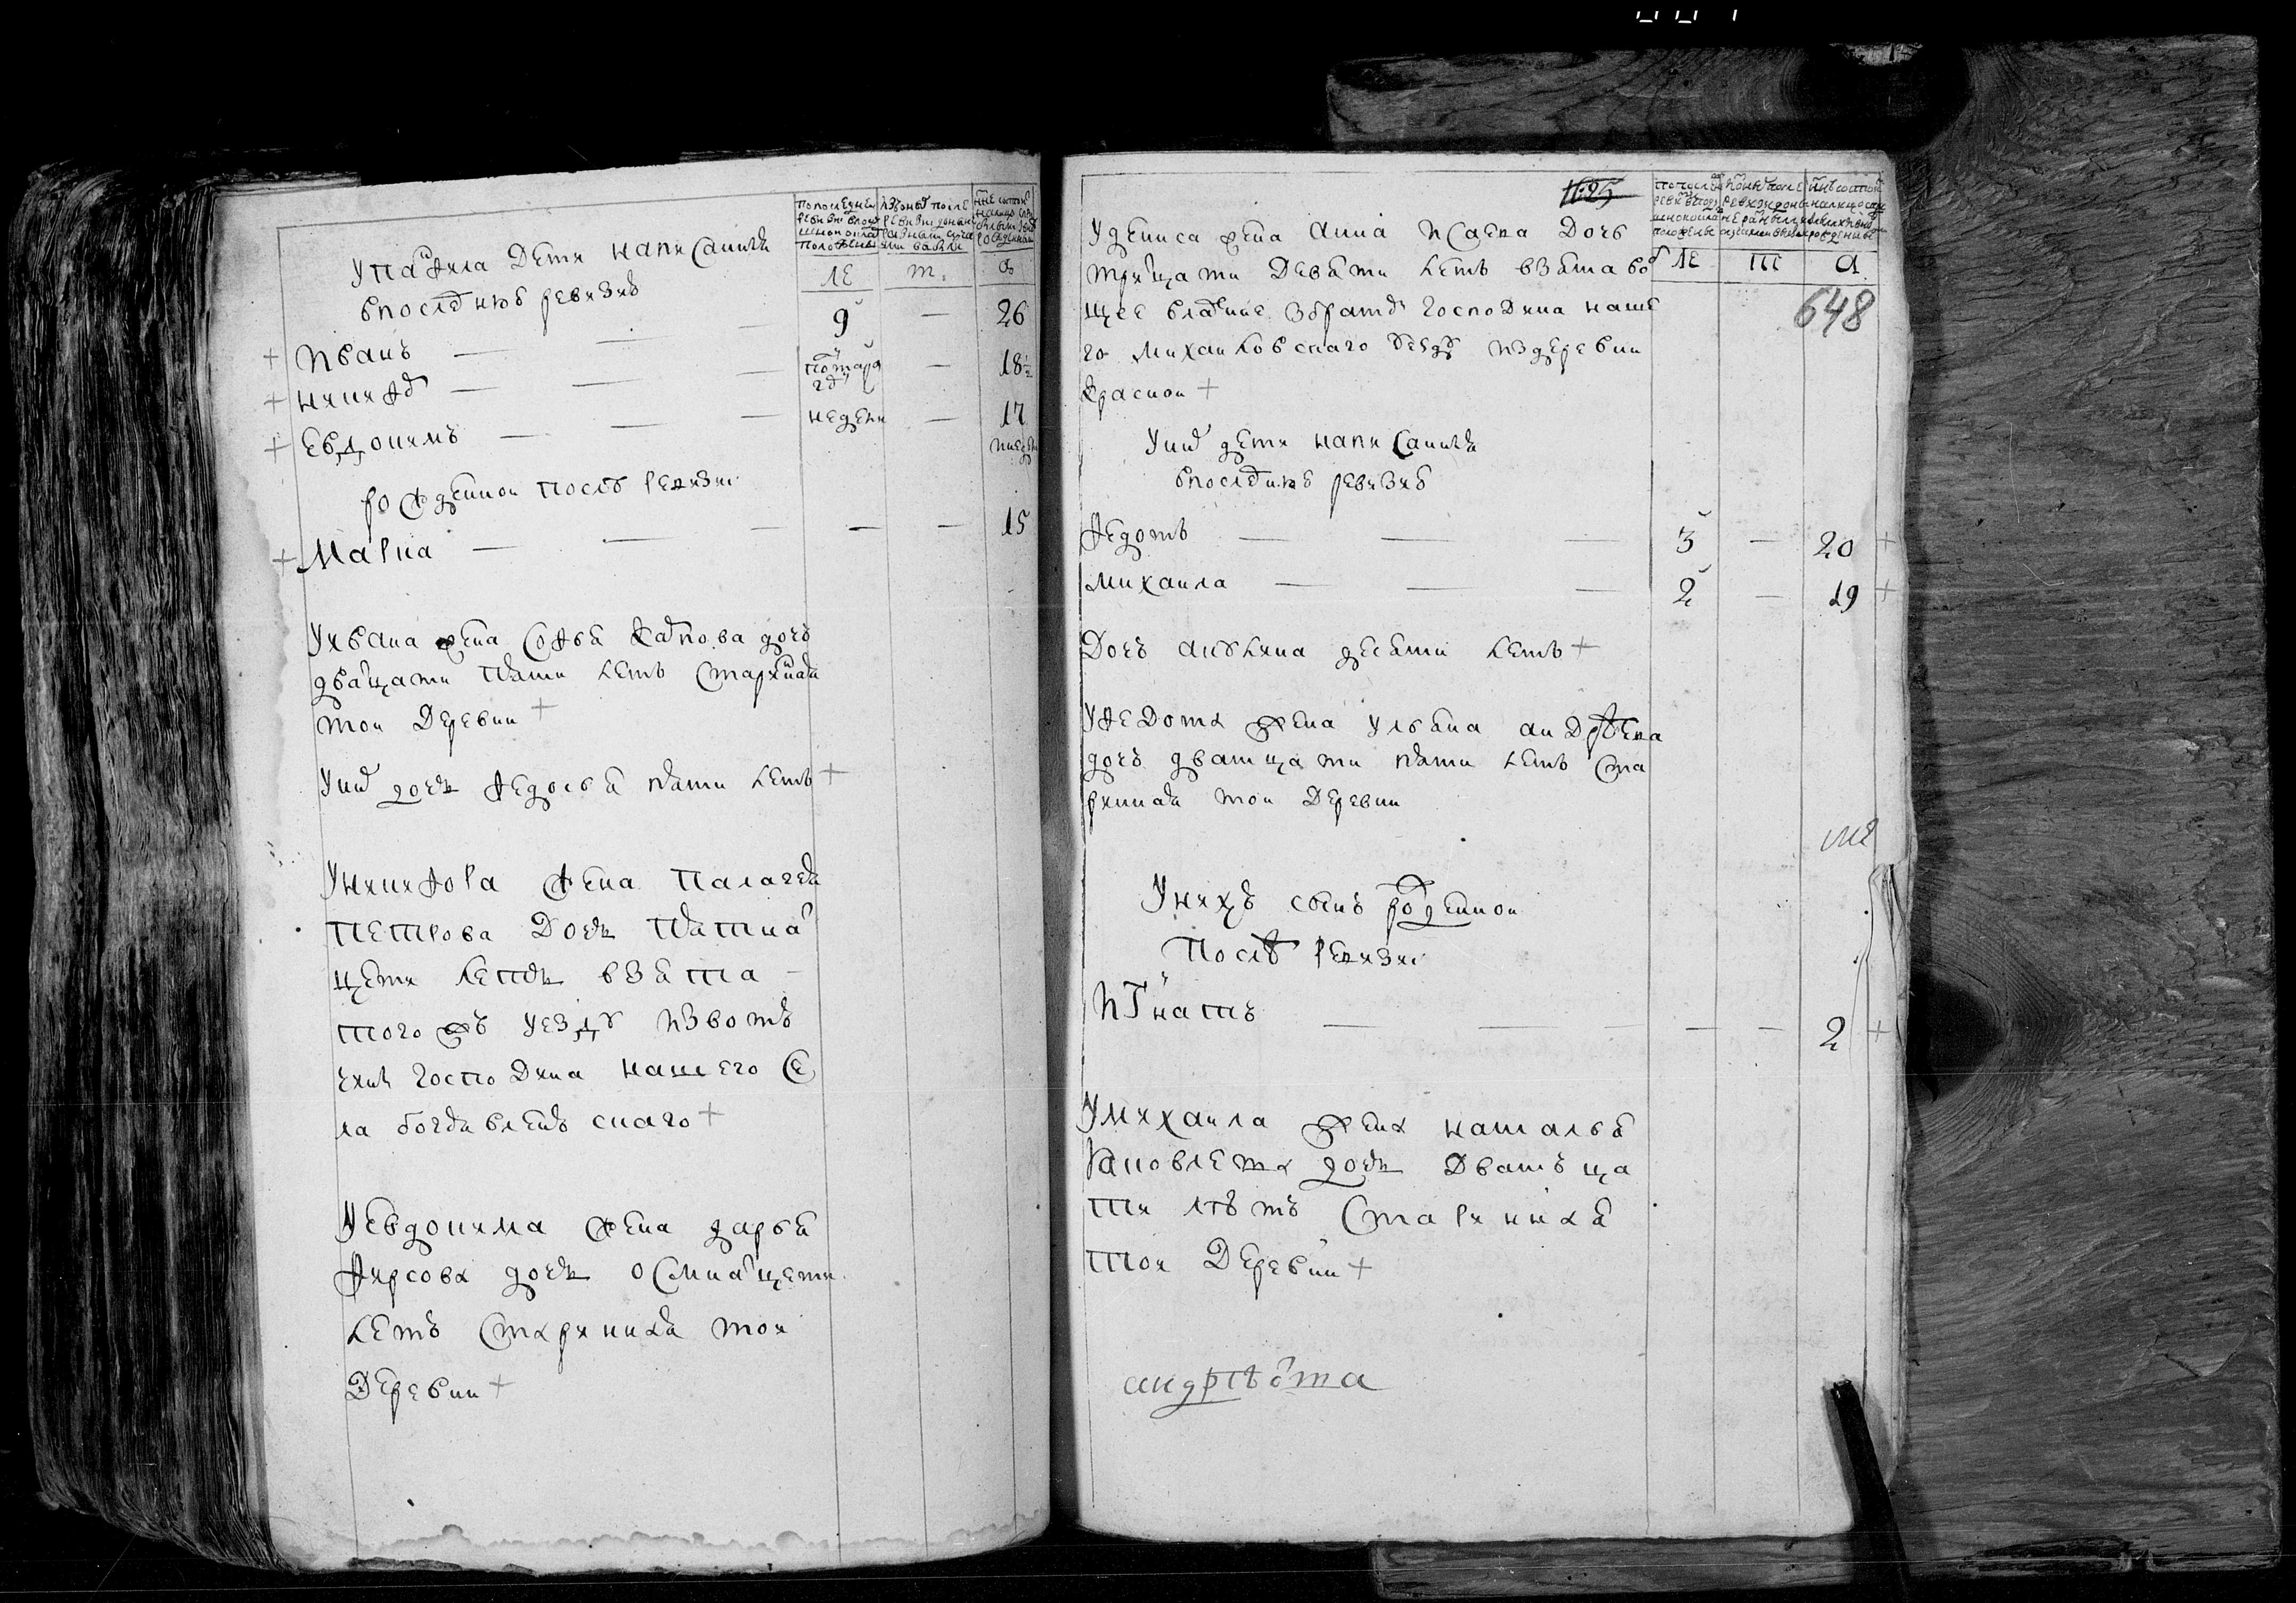 Упанфила Дети написаннѣя
впоследнюю ревизию
ле
т.
а
Иванъ 9 — 26
никифоръ — 18½
Евдокимъ недели — 17
рожденной после ревизии
Марка — — 15
Уивана жена софья карпова дочь
дватцати пяти летъ старинная
тои Деревни
Унихъ дочь федосья пяти летъ
Уникифора жена Палагея
Петрова Дочь пятнат
цети летъ взята
того жъ уезду извотъ
чинъ господина нашего се
ла богоявленскаго
Уевдокима жена дарья
фирсова дочь осмнатцети
летъ старинная тои
Деревни
1625
ле
т
а
648
Удениса жена анна исаева Дочь
тритцати Девяти летъ взята во
щее владение збратомъ господина наше
го михаиловскаго уезду издеревни
красной
Унихъ дети написаннѣя
впоследнюю ревизию
федотъ — — — 3 — 20
михаила — — — 2 — 19
Дочь акулина десяти летъ
Уфедота жена ульяна андреева
дочь дватцати пяти летъ ста
ринная тои Деревни
Унихъ сынъ рожденной
После ревизии
Игнатъ — — — — — 2
Умихаила жена наталья
яковлева дочь Дватьца
ти летъ Стариная
тои Деревни